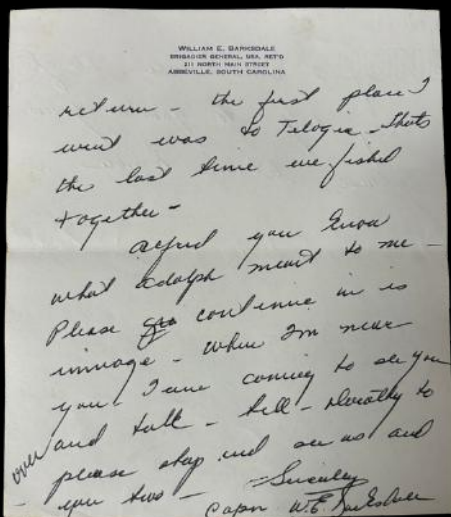 WILLIAM E. BARKSDALE
BRIGADIER GENERAL, USA, RET'D
211 NORTH MAIN STREET
ABBEVILLE, SOUTH CAROLINA
return - the first place I
went was to Telogia - thats
the last time we fished
together -
you know
what adolph meant to me -
Please continue in is
image - when Im near
you I am coming to see you
over and talk - tell - Dorothy to
please stop and see us and
you two -
Sincerely
Capn W. E. Barksdale